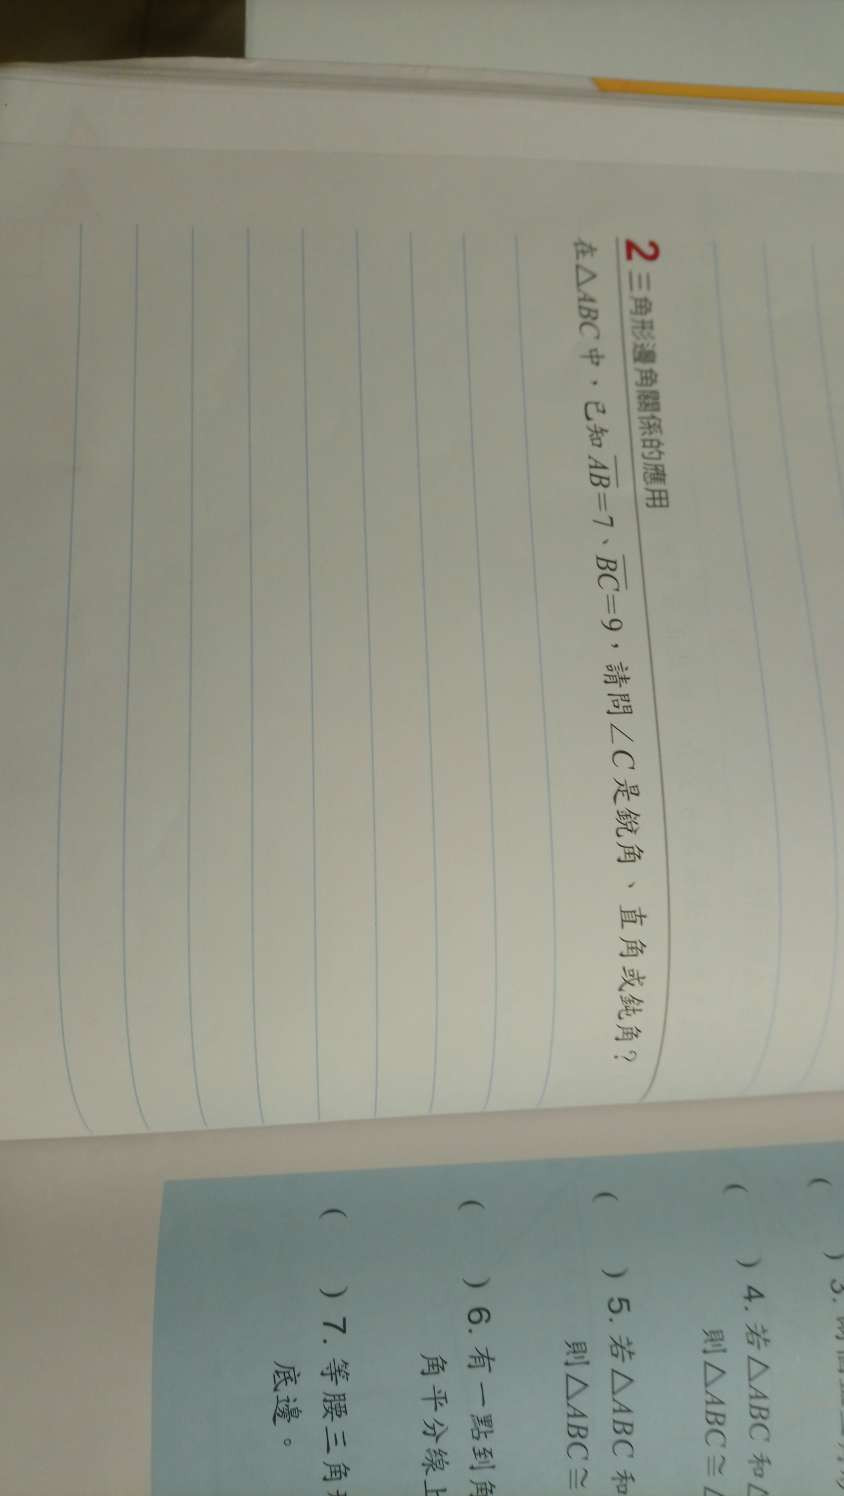 2 三角形邊角關係的應用
在△ABC中，已知AB=7、BC=9，請問∠C是銳角、直角或鈍角？
( ) 3.
( ) 4. 若△ABC和
則△ABC≅
( ) 5. 若△ABC和
則△ABC≅
( ) 6. 有一點到角
角平分線上
( ) 7. 等腰三角形
底邊。